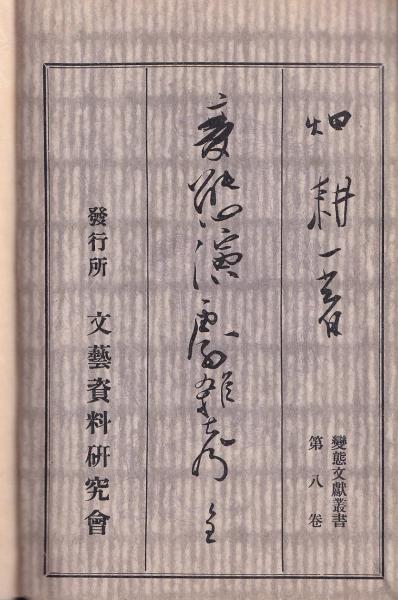 畑耕一著
變態文獻叢書
第八卷
変態演劇雜考 全
發行所 文藝資料研究會